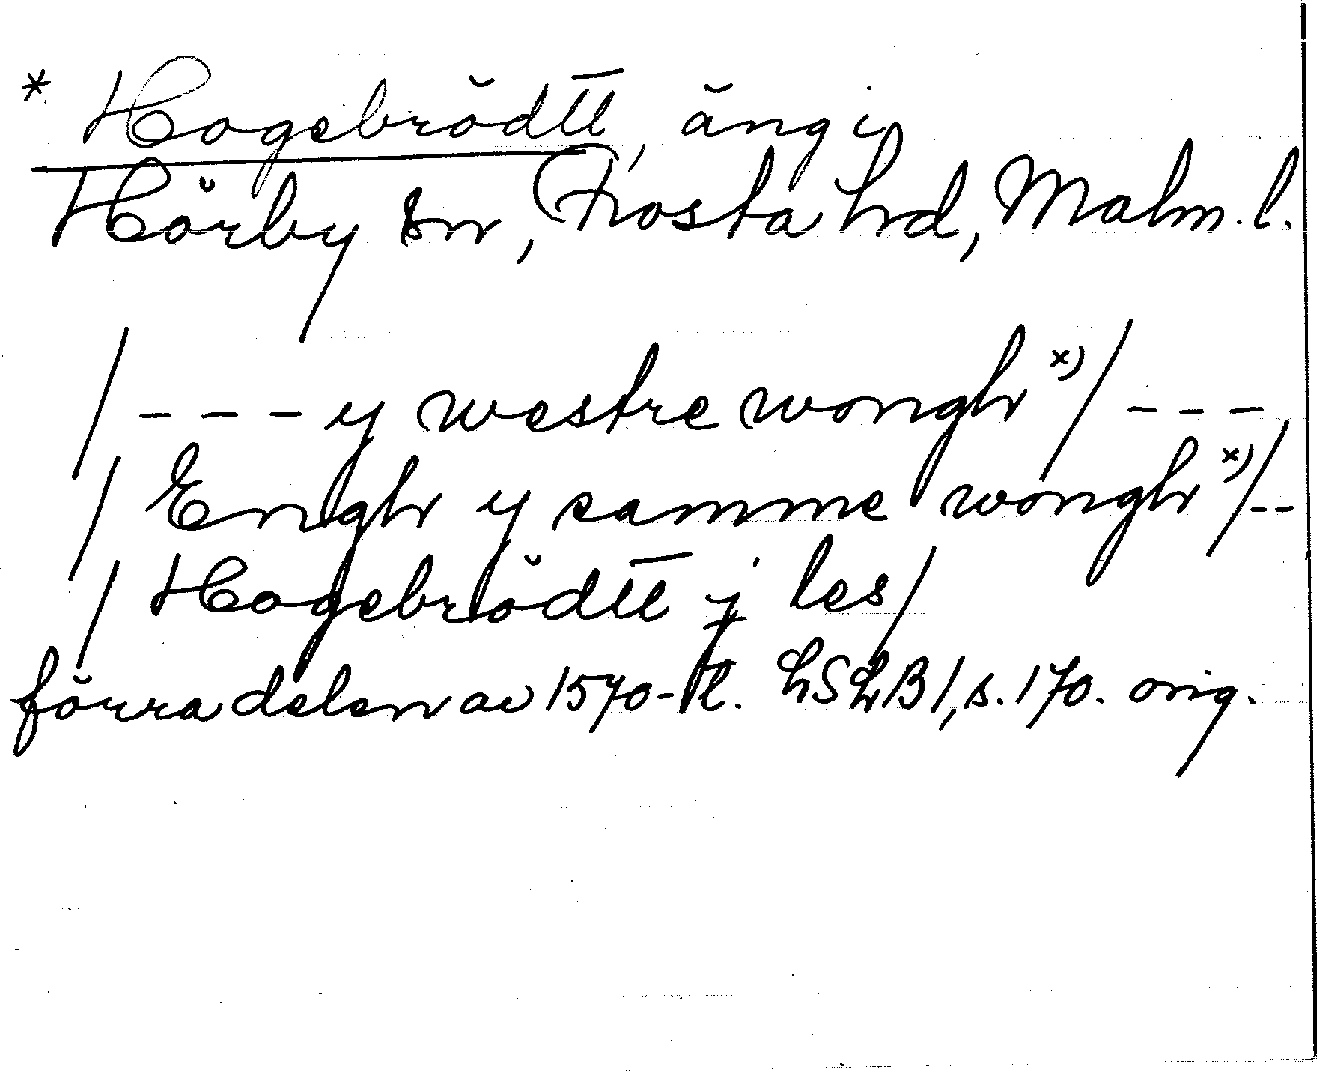 * Hogebrödtt, äng i
Hörby sn, Frosta hrd, Malm. l.
/ - - - y westre wongh *) / - - -
/ Engh y samme wongh *) / - -
/ Hogebrödtt j les /
förra delen av 1570-t. LSLB 1, s. 170. orig.